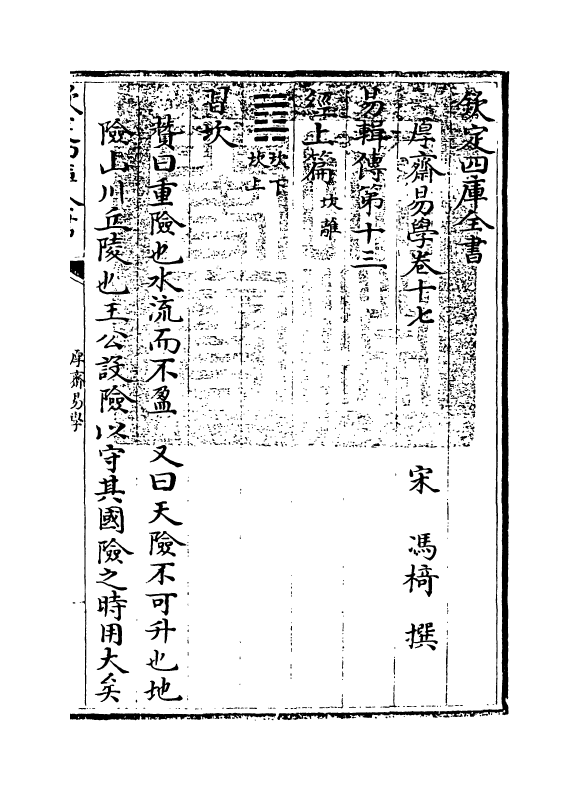 欽定四庫全書
厚齋易學卷十七
宋 馮椅 撰
易輯傳第十三
經上篇 坎離
䷜ 坎下坎上
習坎
贊曰重險也水流而不盈 又曰天險不可升也地
險山川丘陵也王公設險以守其國險之時用大矣
厚齋易學